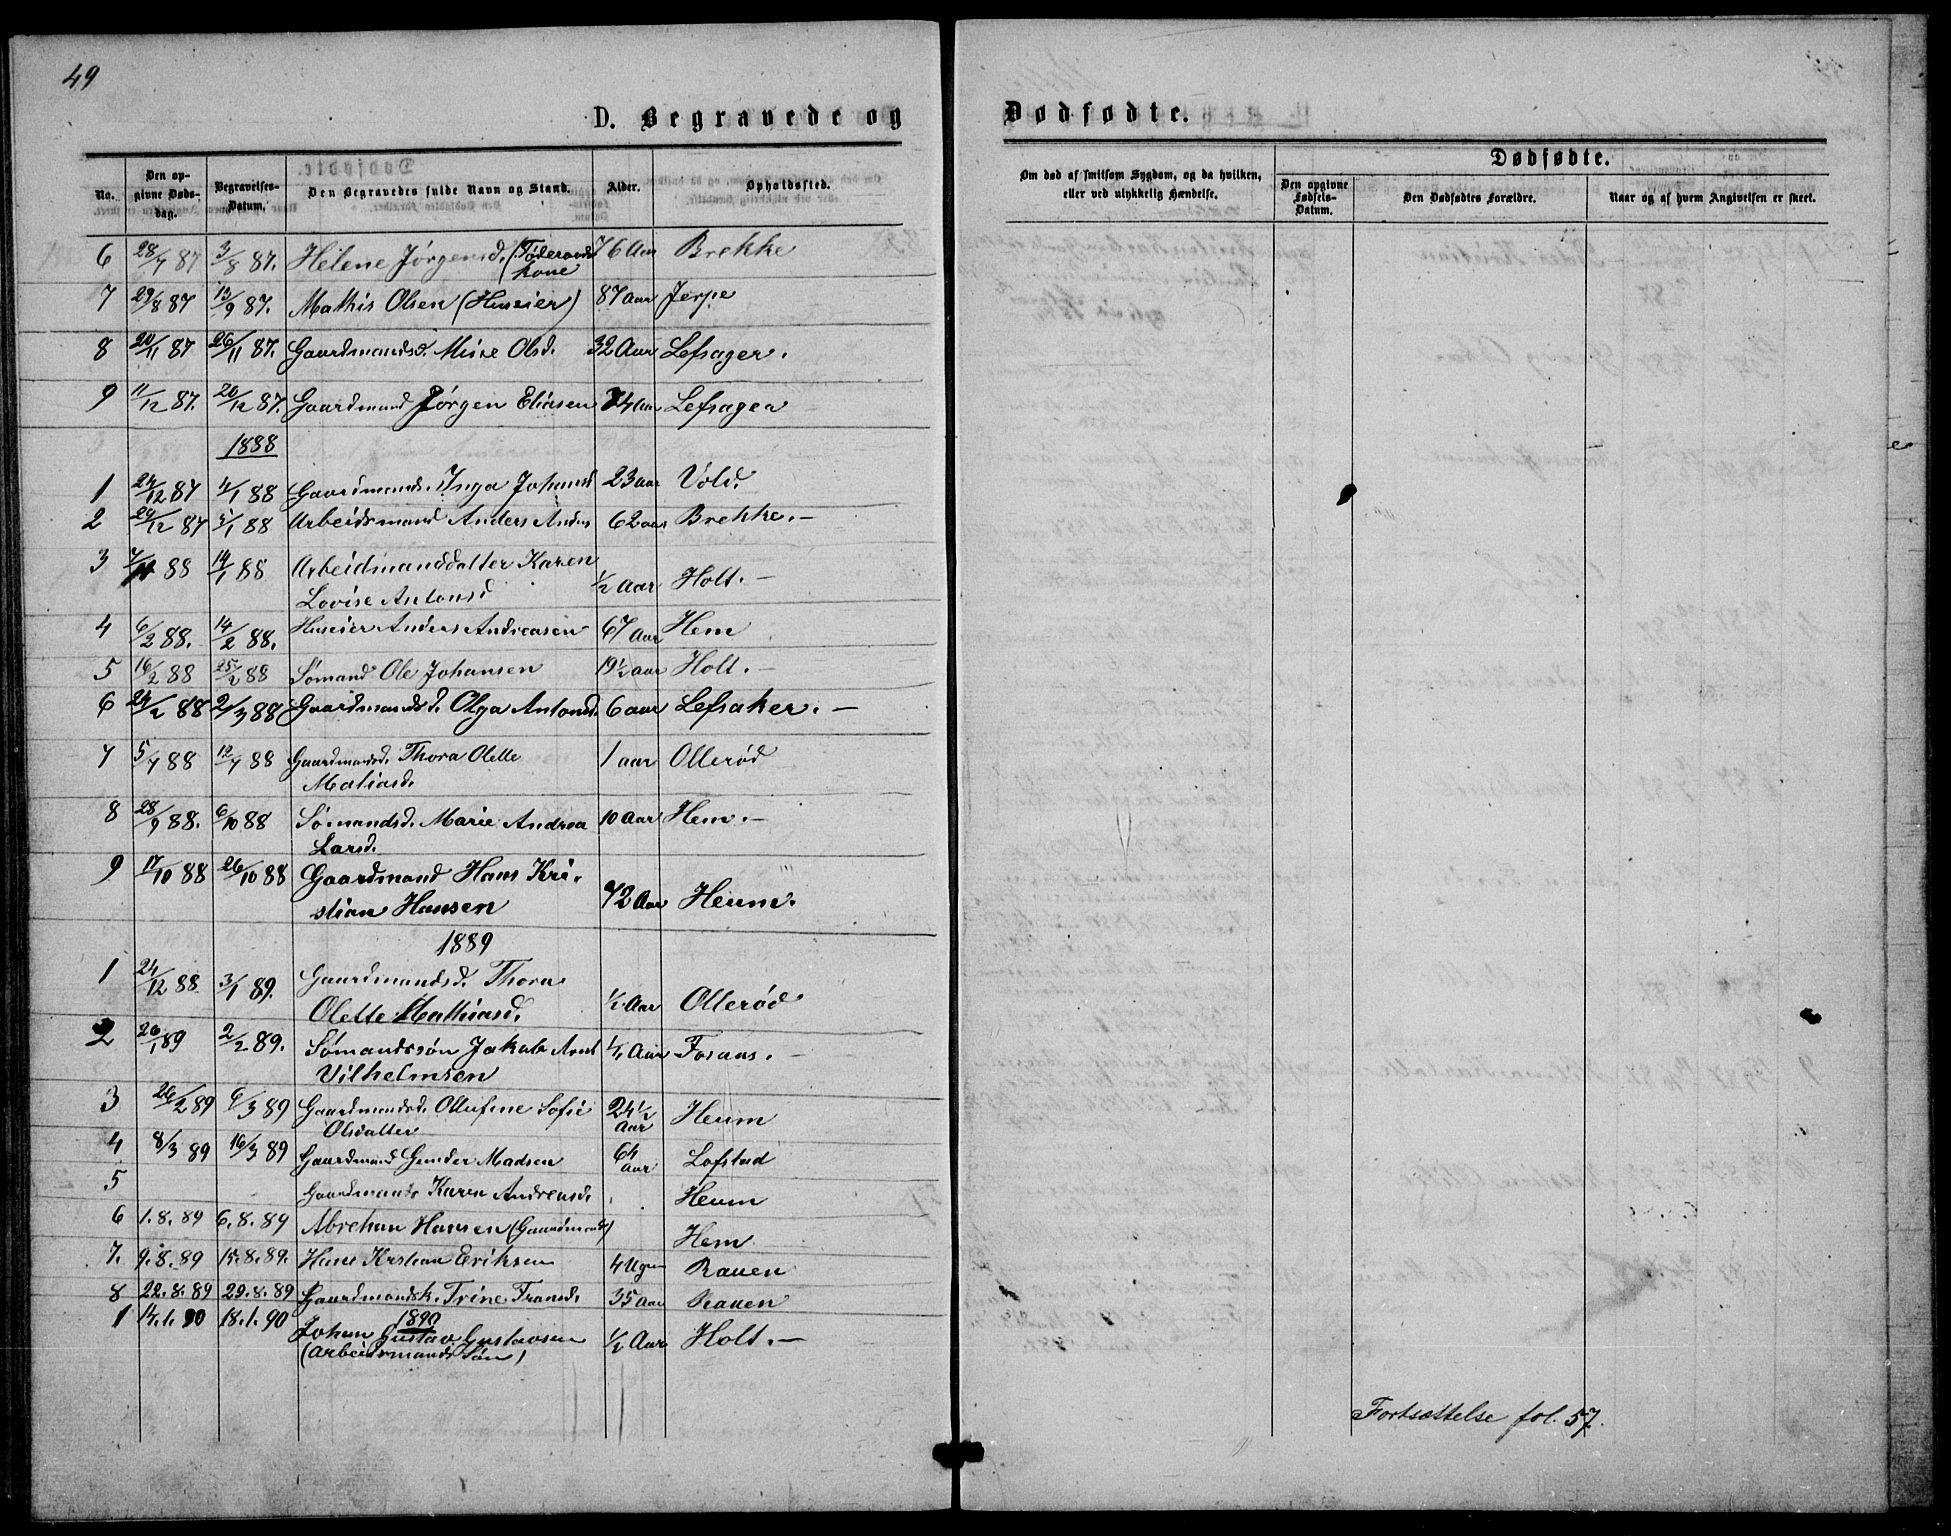 49
D. Begravede og Dødfødte.
No. Den opgivne Dødsdag. Begravelses-Datum. Den Begravedes fulde Navn og Stand. Alder. Opholdssted.
Om død af smitsom Sygdom, og da hvilken, eller ved ulykkelig Hændelse.
Dødfødte.
Den opgivne Fødsels-Datum. Den Dødfødtes Forældre. Naar og af hvem Angivelsen er skeet.
6 28/7 87 3/8 87. Helene Jørgensd. (Føderaads Kone 76 Aar Brekke
7 29/8 87 13/9 87. Mathis Olsen (Huseier) 87 aar Jerpe
8 20/11 87 26/11 87. Gaardmandsd. Mine Olsd. 32 Aar Lefsager.
9 11/12 87. 20/12 87. Gaardmand Jørgen Eliasen 74 Aar Lefsager
1888
1 24/12 87 4/1 88 Gaardmands. Inga Johansd 23 aar Vold.
2 29/12 87 5/1 88 Arbeidsmand Anders Anders 62 aar Brekke. –
3 7/1 88 14/1 88 Arbeidmanddatter Karen
Lovise Antonsd 1/2 Aar Holt. –
4 6/2 88. 14/2 88. Huseier Anders Andreasen 67 Aar Hem
5 16/2 88 25/2 88 Sømand Ole Johansen 19 1/2 aar Holt. –
6 24/2 88 2/3 88 Gaardmandsd. Olga Antonsd. 6 aar Lefsaker. –
7 5/7 88 12/7 88 Gaardmandsd. Thora Olette
Matiasd. 1 aar Ollerød
8 28/9 88. 6/10 88 Sømandsd. Marie Andrea
Larsd. 10 Aar Hem. –
9 17/10 88 26/10 88 Gaardmand Hans Kri-
stian Hansen 72 Aar Heum.
1889
1 24/12 88 3/1 89. Gaardmandsd. Thora
Olette Mathiasd. 1/2 Aar Ollerød
2 26/1 89 2/2 89. Sømandssøn Jakob Arnt
Vilhelmsen Aar Fosaas. –
3 26/2 89 6/3 89 Gaardmandsd. Olufine Sofie
Olsdatter 24 1/2 Aar Heum
4 8/3 89 16/3 89 Gaardmand Gunder Madsen 64 Aar Lofstad
5 Gaardmands Karen Andreasd. Heum
6 1. 8. 89 6. 8. 89 Abrehan Hansen (Gaardmands) Hem
7. 9. 8. 89 15. 8. 89. Hans Kristian Eriksen 4 Uger Rauen
8 22. 8. 89 29. 8. 89 Gaardmandsk. Trine Fransd. 35 aar Rauen
1890
1 14. 1. 90 18. 1. 90 Johan Gustav Gustavsen
(Arbeidsmands Søn) 1/2 Aar Holt. –
Fortsættelse fol. 57.